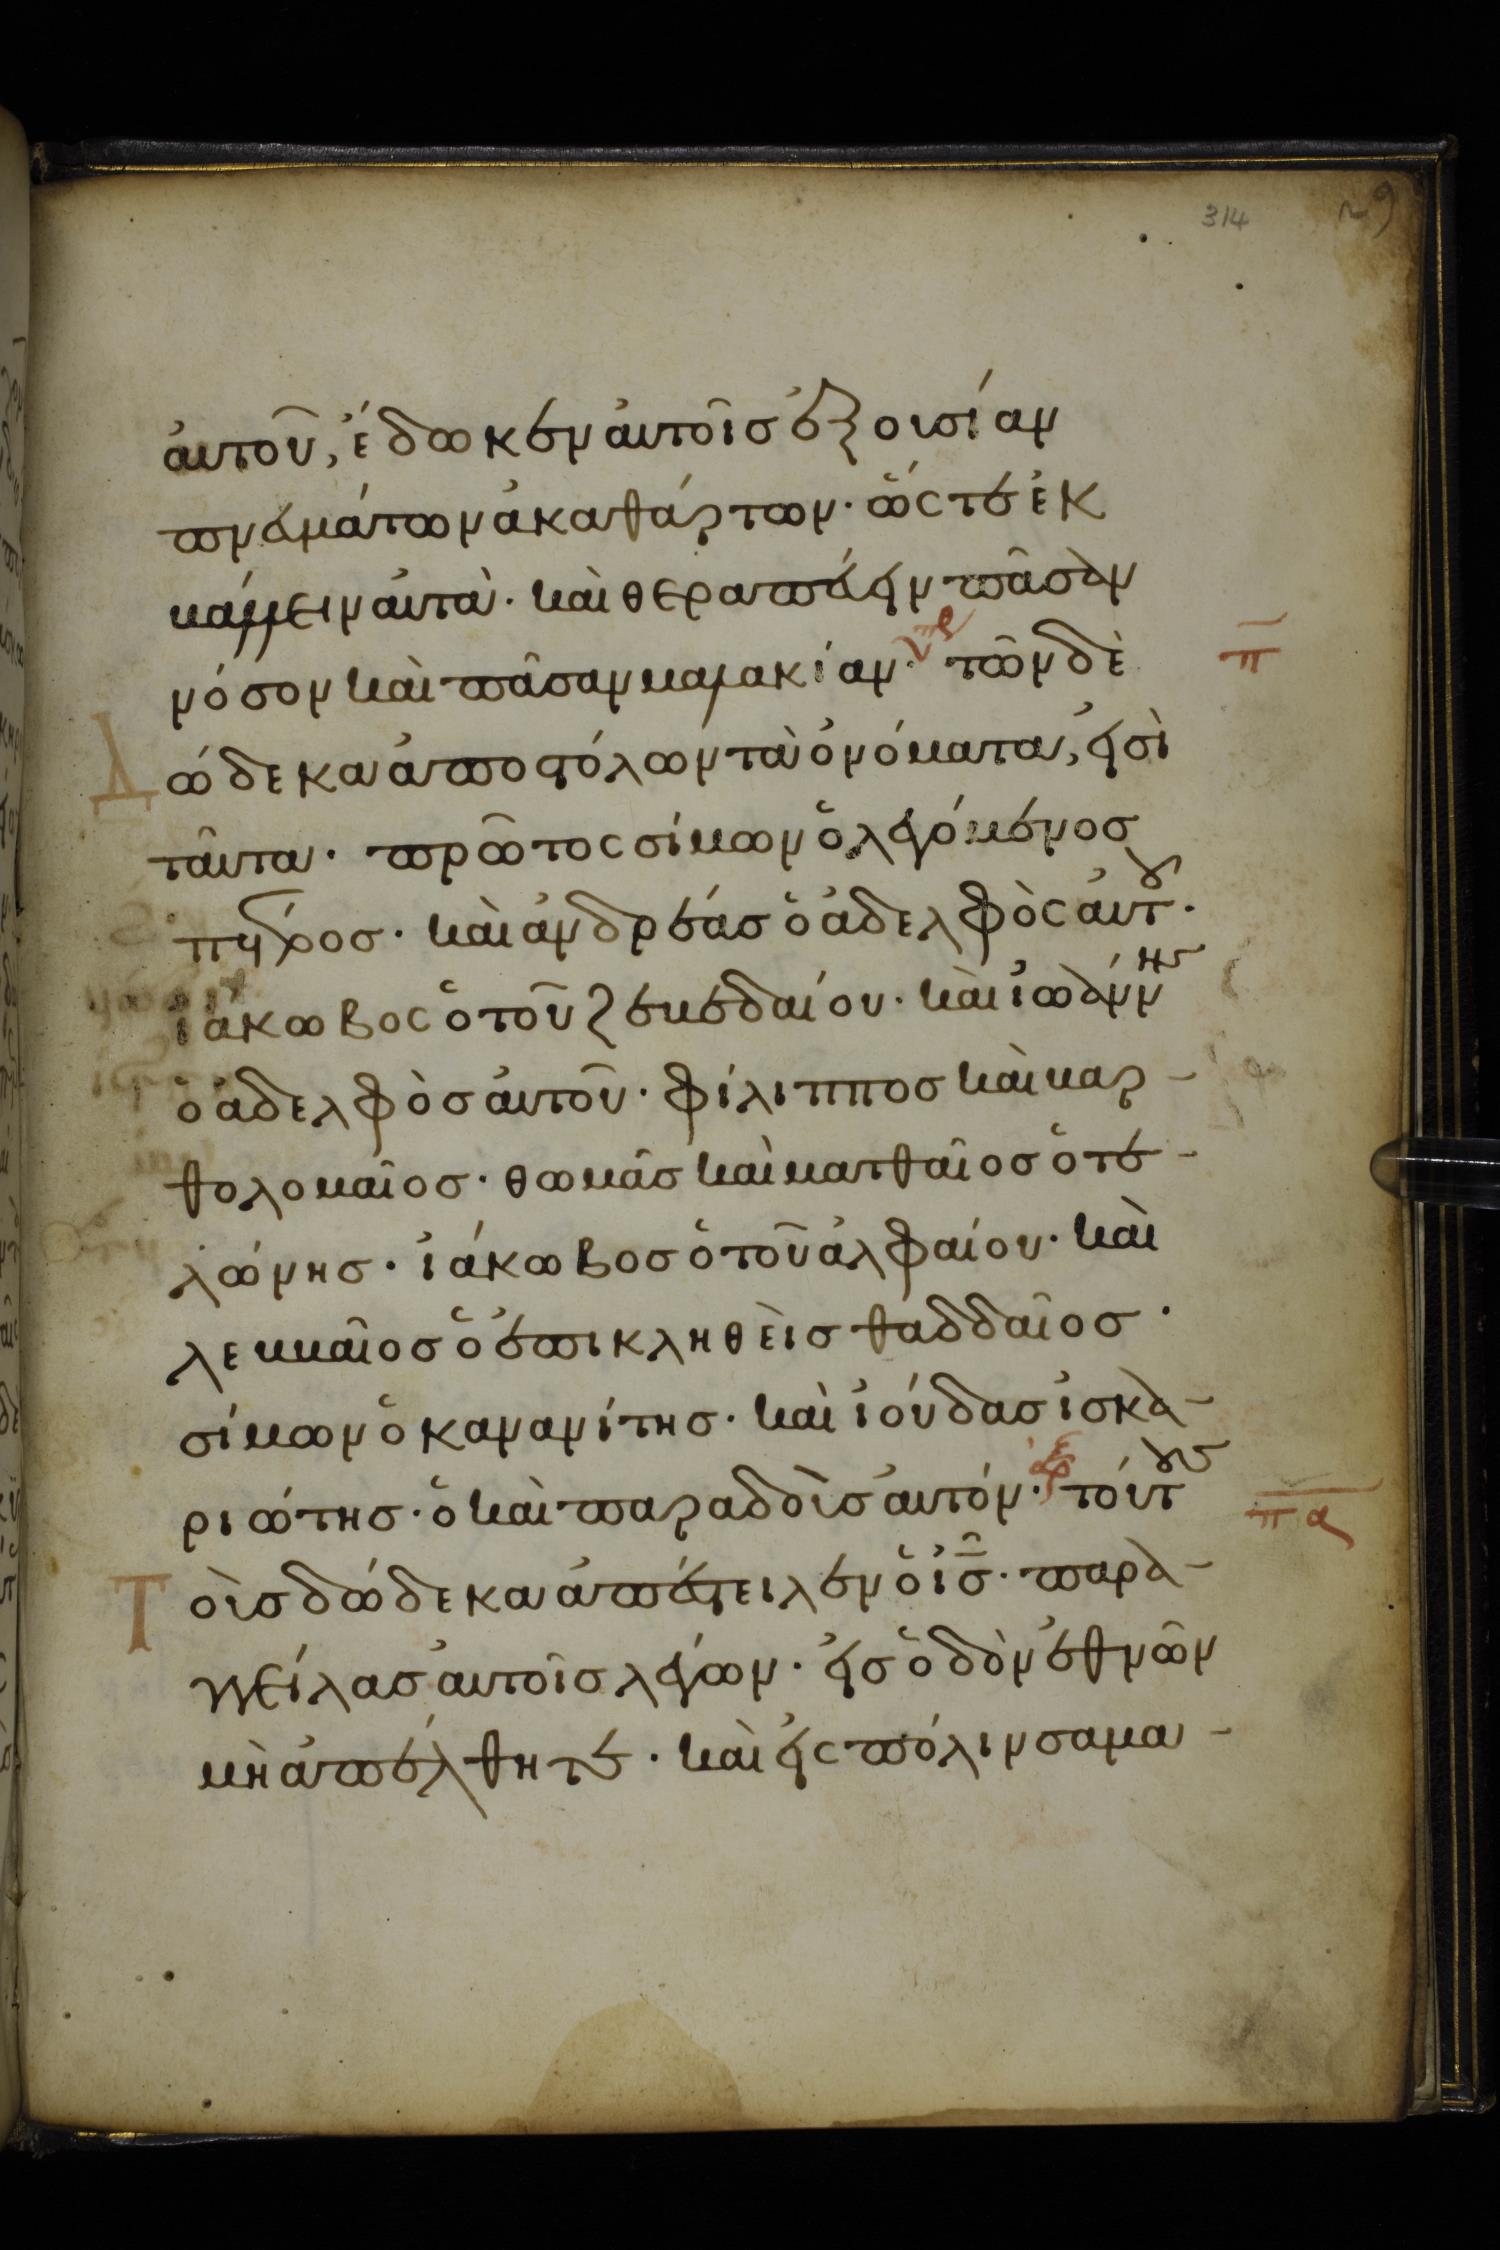 314
αυτοῦ, ἔδωκεν αυτοῖσ ἐξουσίαν
πνευμάτων ἀκαθάρτων· ὥστε ἐκ
βάλλειν αυτὰ· καὶ θεραπεύειν πᾶσαν
νόσον καὶ πᾶσαν μαλακίαν· τῶν δὲ
π̅
Δώδεκα ἀποστόλων τὰ ὀνόματα, εἰσὶ
ταῦτα· πρῶτος σίμων ὁ λεγόμενοσ
πέτροσ· καὶ ἀνδρέασ ὁ ἀδελφὸς αὐτοῦ·
ἰάκωβος ὁ τοῦ ζεβεδαίου· καὶ ἰωάννησ
ὁ ἀδελφὸσ αὐτοῦ· φίλιπποσ καὶ βαρ-
θολομαῖοσ· θωμᾶσ καὶ ματθαῖοσ ὁ τε-
λώνησ· ἰάκωβοσ ὁ τοῦ ἀλφαίου· καὶ
λεββαῖοσ ὁ ἐπικληθεὶσ θαδδαῖοσ·
σίμων ὁ κανανίτησ· καὶ ἰούδασ ἰσκα-
ριώτησ· ὁ καὶ παραδοὺσ αὐτόν· τούτουσ
π̅α̅
Τοὺσ δώδεκα ἀπέστειλεν ὁ ἰ̅σ̅· παρα-
γγείλασ αὐτοῖσ λέγων· εἰσ ὁδὸν ἐθνῶν
μὴ ἀπέλθητε· καὶ εἰς πόλιν σαμα-